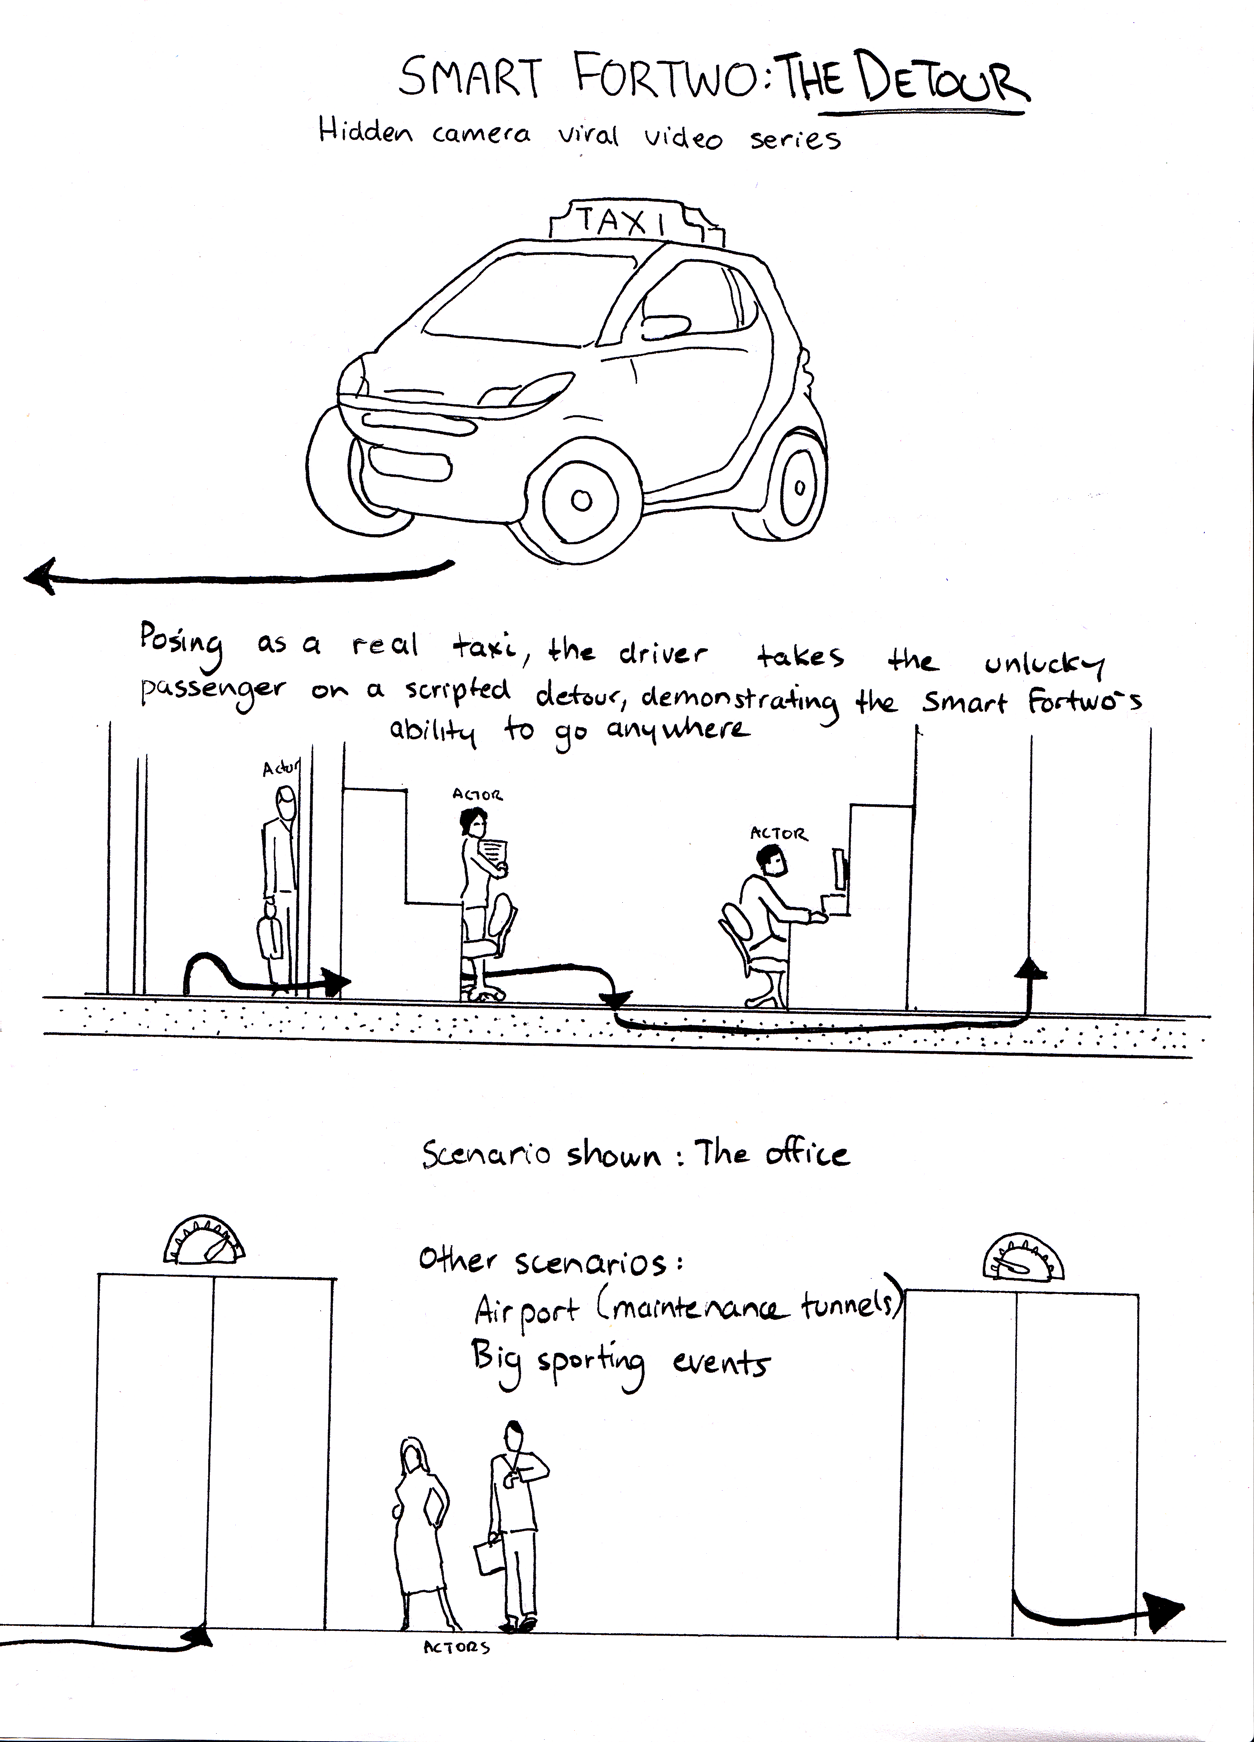 SMART FORTWO: THE DETOUR
Hidden camera viral video series
TAXI
Posing as a real taxi, the driver takes the unlucky
passenger on a scripted detour, demonstrating the Smart Fortwo's
ability to go anywhere
Actor
ACTOR
ACTOR
Scenario shown: The office
Other scenarios:
Airport (maintenance tunnels)
Big sporting events
ACTORS